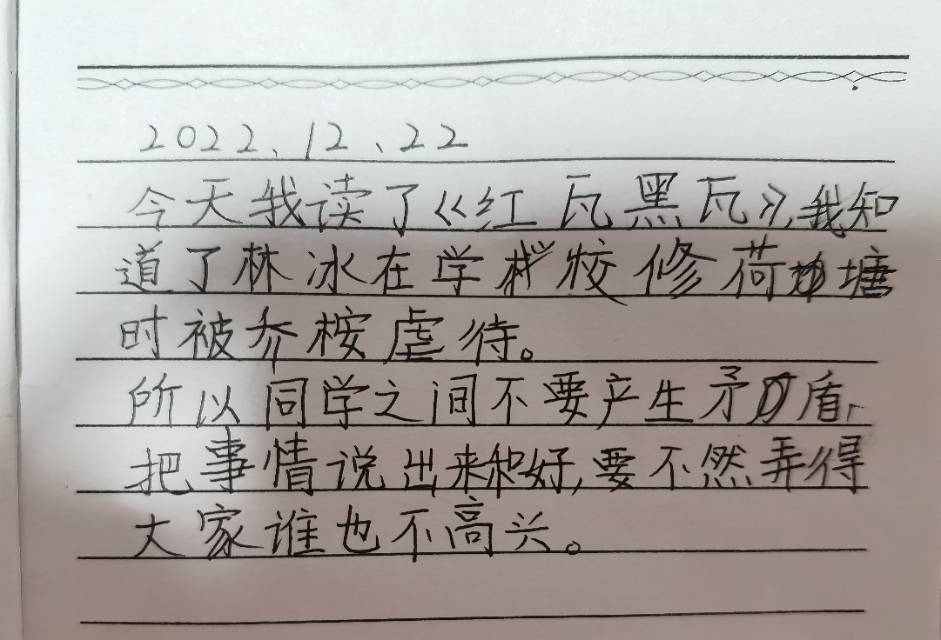 2022、12、22
今天我读了《红瓦黑瓦》,我知
道了林冰在学校修荷塘
时被乔桉虐待。
所以同学之间不要产生矛盾,
把事情说出来和好,要不然弄得
大家谁也不高兴。